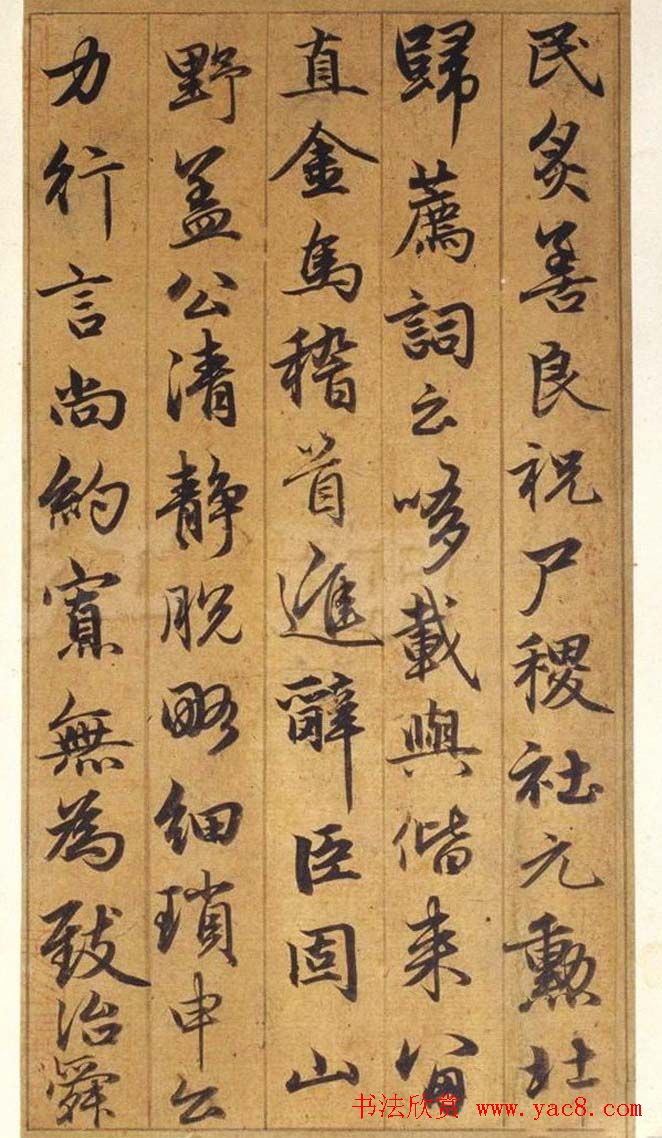 民炙善良祝尸稷社元勳社
歸薦詞云嗲載與偕来留
直金馬稽首進辭臣固山
野盖公清静脱略細瑣申公
力行言尚約寡無為致治舜
书法欣赏 www.yac8.com